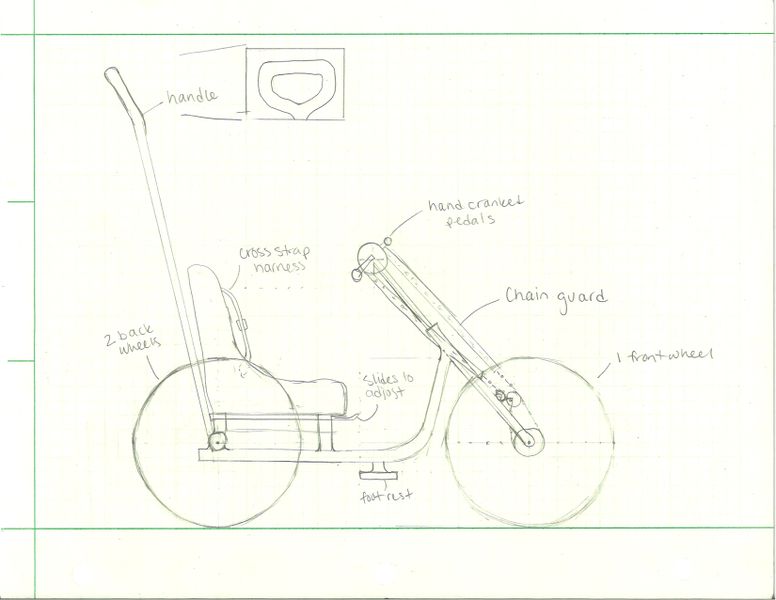 handle
hand cranked
pedals
cross strap
harness
Chain guard
2 back
wheels
1 front wheel
slides to
adjust
foot rest